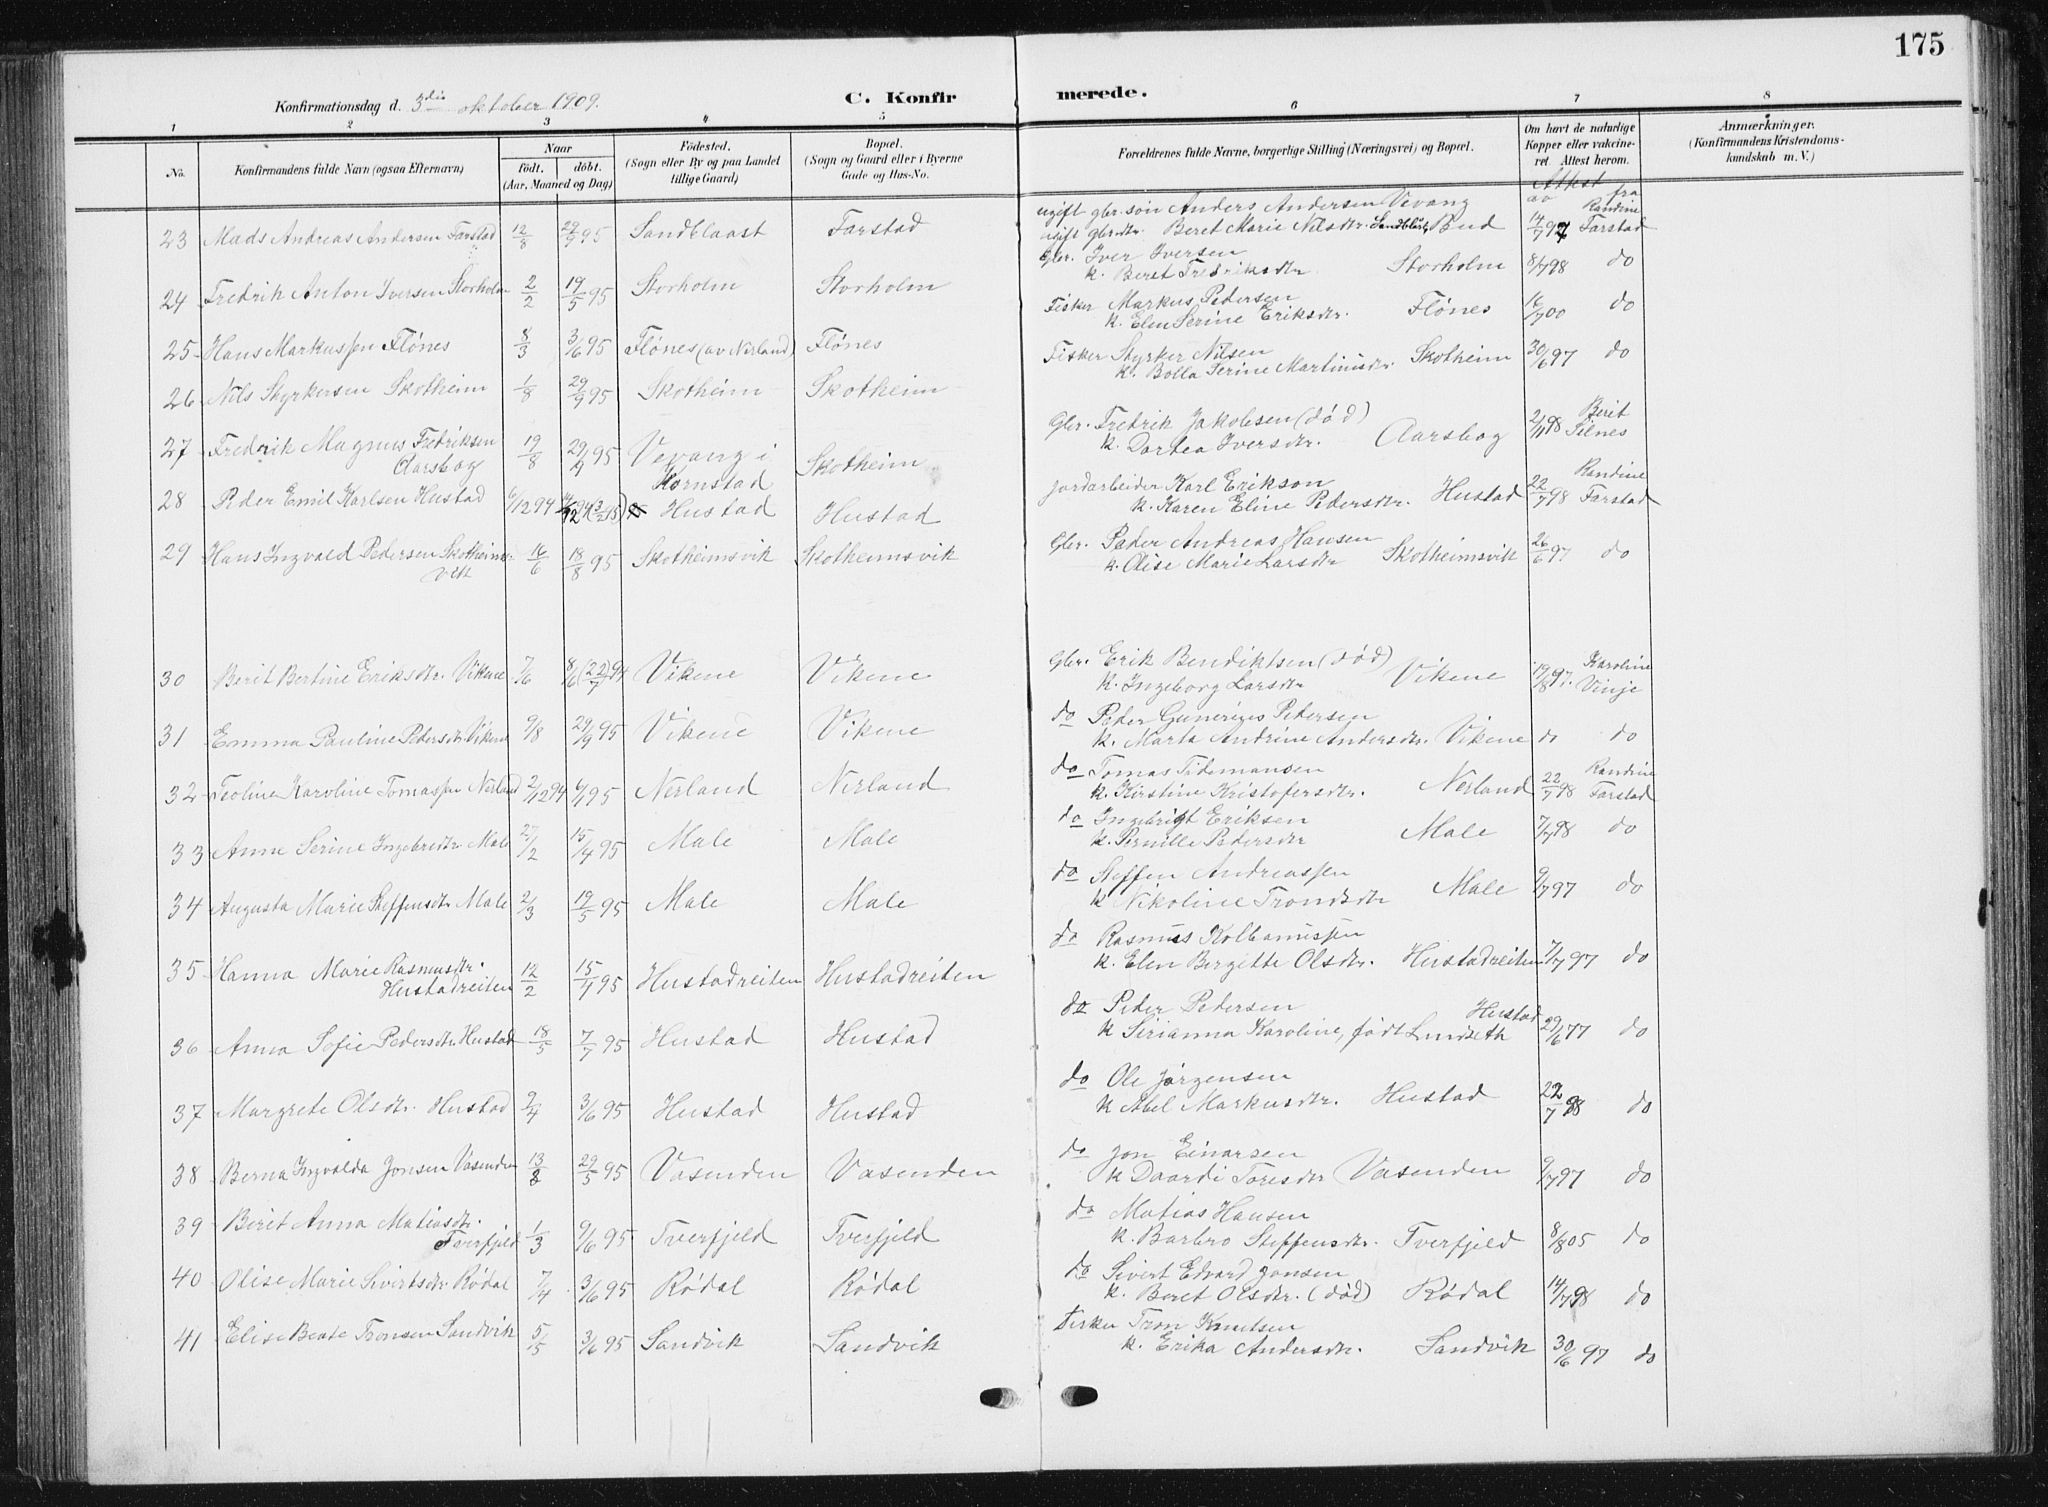 175
Konfirmationsdag d. 3die oktober 1909.
C. Konfirmerede.
1 2 3 4 5 6 7 8
No. Konfirmandens fulde Navn (ogsaa Efternavn) Naar født. døbt. (Aar, Maaned og Dag) Fødested. (Sogn eller By og paa Landet tillige Gaard) Bopæl. (Sogn og Gaard eller i Byerne Gade og Hus-No. Forældrenes fulde Navne, borgerlige Stilling (Næringsvei) og Bopæl. Om havt de naturlige Kopper eller vakcineret. Attest herom. Anmærkninger. (Konfirmandens Kristendomskundskab m. V.)
Attest av fra
23 Mads Andreas Andersen Farstad 12/8 29/9 95 Sandblaast Farstad ugift gbr. søn Anders Andersen Vevang 14/7 97 Randine Farstad
ugift gbr. dtr. Beret Marie Nilsdtr. Sandblåst, Bud
24 Fredrik Anton Iversen Storholm 2/2 19/5 95 Storholm Storholm Gbr. Iver Iversen Storholm 8/7 98 do
k. Beret Fredriksdtr
25 Hans Markussen Flónes 8/3 3/6 95 Flónes (av Nerland) Flónes Fisker Markus Pedersen Flónes 16/7 00 do
k. Elen Serine Eriksdtr.
26 Nils Styrkersen Skotheim 1/8 29/9 95 Skotheim Skotheim Fisker Styrker Nilsen Skotheim 30/6 97 do
k. Bolla Serine Martinusdtr.
27 Fredrik Magnus Fredriksen Aarsbog 19/8 29/9 95 Vevang i Kornstad Skotheim Gbr. Fredrik Jakobsen (død) Aarsbog 2/11 98 Berit Silnes
k. Dortea Iversdtr.
28 Peder Emil Karlsen Hustad 6/12 94 (3/2 95) Hustad Hustad jordarbeider Karl Erikson Hustad 22/7 98 Randine Farstad
k. Karen Eline Pedersdtr.
29 Hans Ingvald Pedersen Skotheimsvik 16/6 18/8 95 Skotheimsvik Skotheimsvik Gbr. Peder Andreas Hansen Skotheimsvik 26/6 97 do
k. Olise Marie Larsdtr
30 Berit Bertine Eriksdtr. Vikene 7/6 8/6 (22/7) 94 Vikene Vikene Gbr. Erik Bendiktsen (død) Vikene 19/8 97. Karoline Vinje
k. Ingeborg Larsdtr
31 Emma Pauline Pedersdtr. Vikene 9/8 29/9 95 Vikene Vikene do Peder Gunerius Petersen Vikene do do
k. Marta Andrine Andersdtr.
32 Teoline Karoline Tomassen Nerland 2/12 94 6/1 95 Nerland Nerland do Tomas Tidemansen Nerland 22/7 98 Randine Farstad
k. Kirstine Kristofersdtr.
33 Anne Serine Ingebredtr. Male 27/2 15/4 95 Male Male do Ingebrigt Eriksen Male 7/7 98 do
k. Pernille Pedersdtr
34 Augusta Marie Steffensdtr. Male 2/3 19/5 95 Male Male do Steffen Andreassen Male 9/7 97 do
k Nikoline Trondsdtr
35 Hanna Marie Rasmusdtr. Hustadreiten 12/2 15/4 95 Hustadreiten Hustadreiten do Rasmus Kolbanussen Hustadreiten 7/7 97 do
k. Elen Bergitte Olsdtr.
36 Anna Sofie Pedersdtr. Hustad 18/5 7/7 95 Hustad Hustad do Peder Pedersen Hustad 29/6 77 do
k Sirianna Karoline, født Lundseth
37 Margrete Olsdtr. Hustad 2/4 3/6 95 Hustad Hustad do Ole Jørgensen Hustad 22/7 98 do
k Abel Markusdtr.
38 Berna Ingvalda Jonsen Vasenden 13/3 29/5 95 Vasenden Vasenden do Jon Einarsen Vasenden 9/7 97 do
k Daardi Toresdtr
39 Berit Anna Matiasdtr. Tverfjeld 1/3 9/6 95 Tverfjeld Tverfjeld do Matias Hansen Tverfjeld 8/8 05 do
k. Barbro Steffensdtr.
40 Olise Marie Sivertsdtr Rødal 7/4 3/6 95 Rødal Rødal do Sivert Edvard Jonsen Rødal 14/7 98 do
k. Beret Olsdtr. (død)
41 Elise Beate Tronsen Sandvik 5/5 3/6 95 Sandvik Sandvik Fisker Tron Knutsen Sandvik 30/6 97 do
k. Erika Andersdtr.